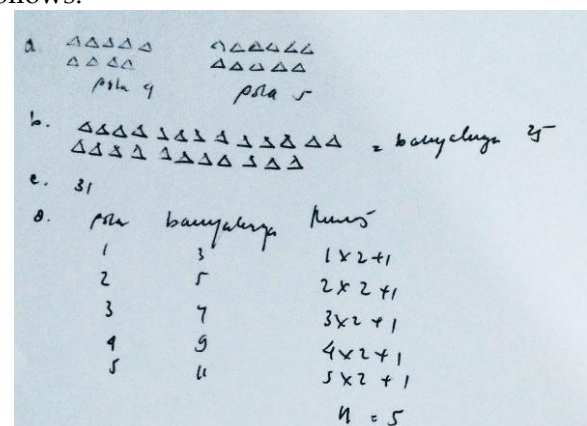 ollows:
a.
pola 4 pola 5
b. = banyaknya 25
c. 31
d. pola banyaknya Rumus
1 3 1 x 2 + 1
2 5 2 x 2 + 1
3 7 3 x 2 + 1
4 9 4 x 2 + 1
5 11 5 x 2 + 1
n = 5